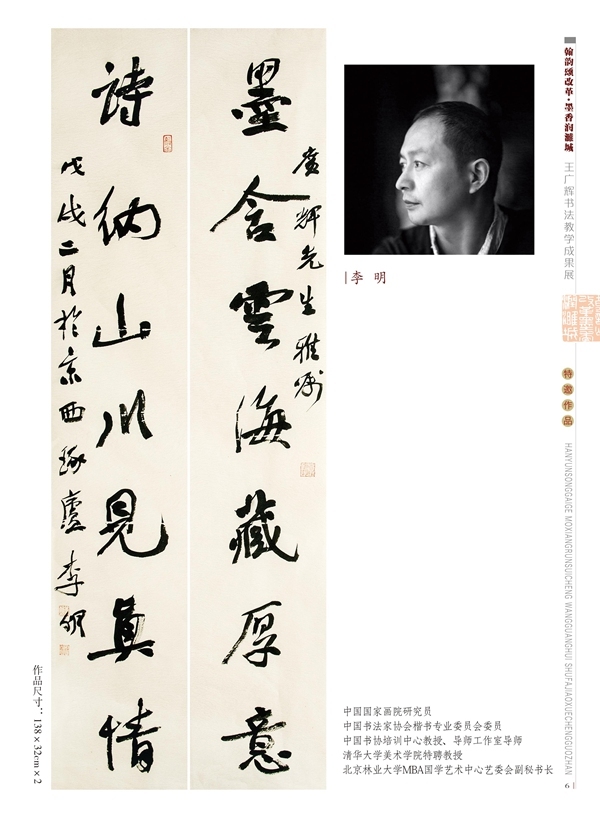 墨含雲海藏厚意
廣輝先生雅囑
詩納山川見真情
戊戌二月於京西琢廬李明
作品尺寸：138×32cm×2
李 明
中国国家画院研究员
中国书法家协会楷书专业委员会委员
中国书协培训中心教授、导师工作室导师
清华大学美术学院特聘教授
北京林业大学MBA国学艺术中心艺委会副秘书长
翰韵颂改革·墨香润濉城
王广辉书法教学成果展
特邀作品
HANYUNSONGGAIGE MOXIANGRUNSUICHENG WANGGUANGHUI SHUFAJIAOXUECHENGGUOZHAN
6